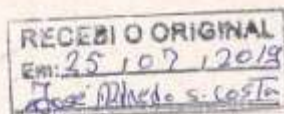 RECEBI O ORIGINAL
Em: 25 / 07 / 2019
José Alfredo S. Costa